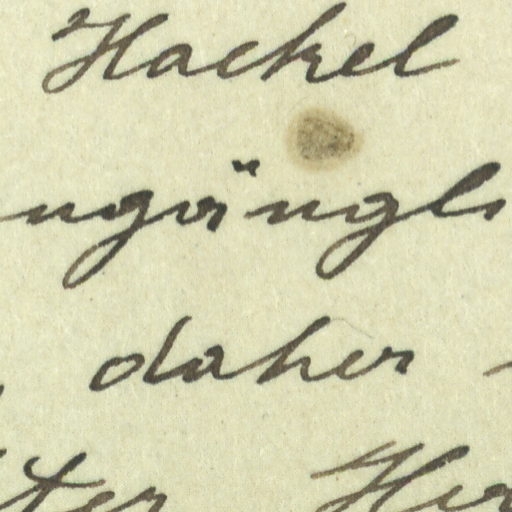 Hackel
ngängl
daher
ter Her